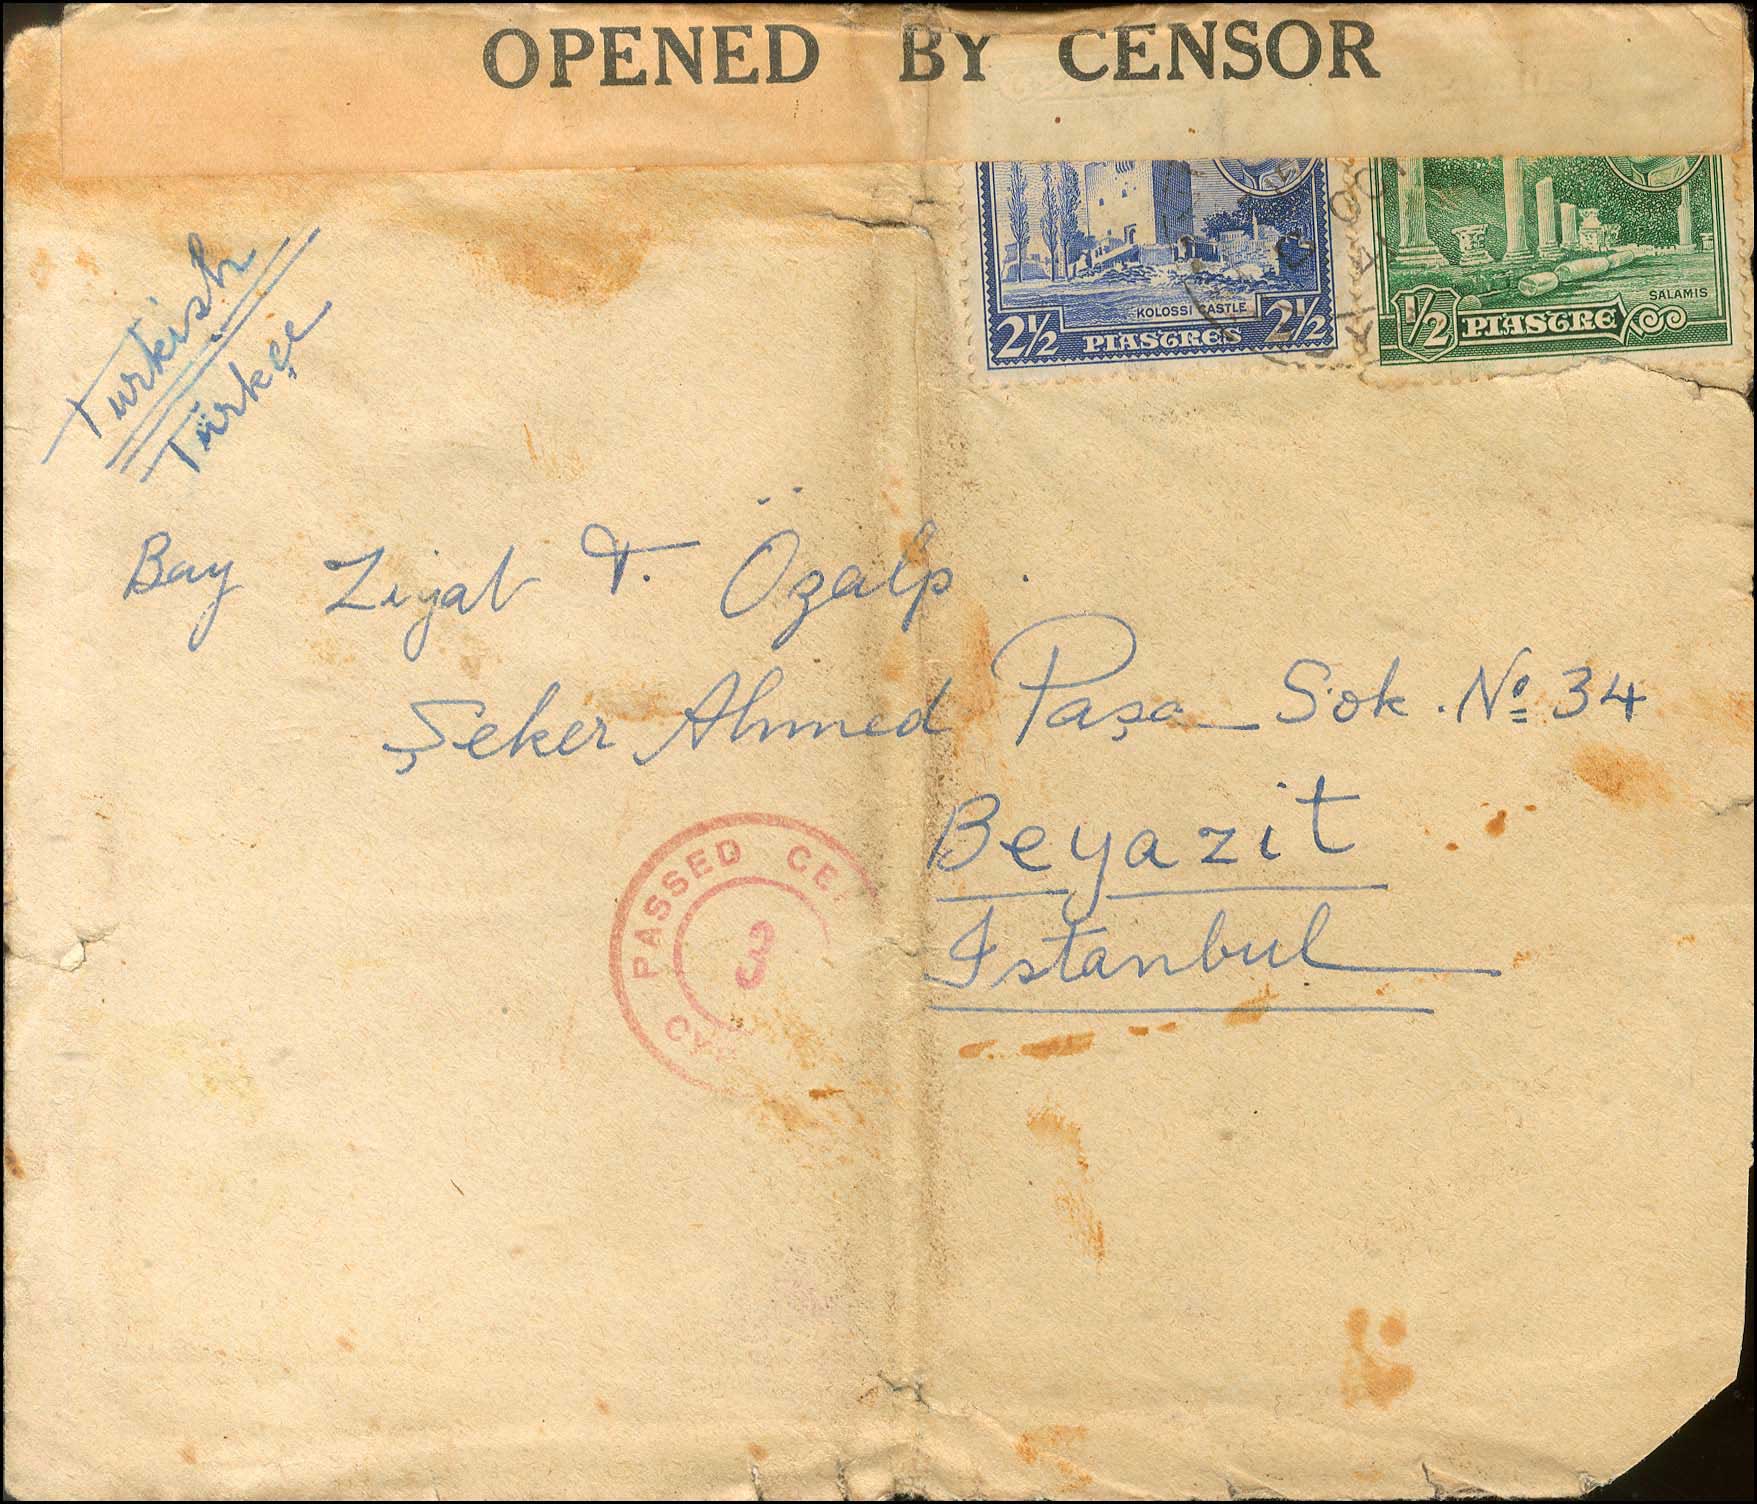 OPENED BY CENSOR
KOLOSSI CASTLE
2½ PIASTRES 2½
SALAMIS
½ PIASTRE
Turkish
Türkçe
Bay Ziyat T. Özalp.
Şeker Ahmed Paşa Sok. Nº 34
Beyazit
Istanbul
PASSED
3